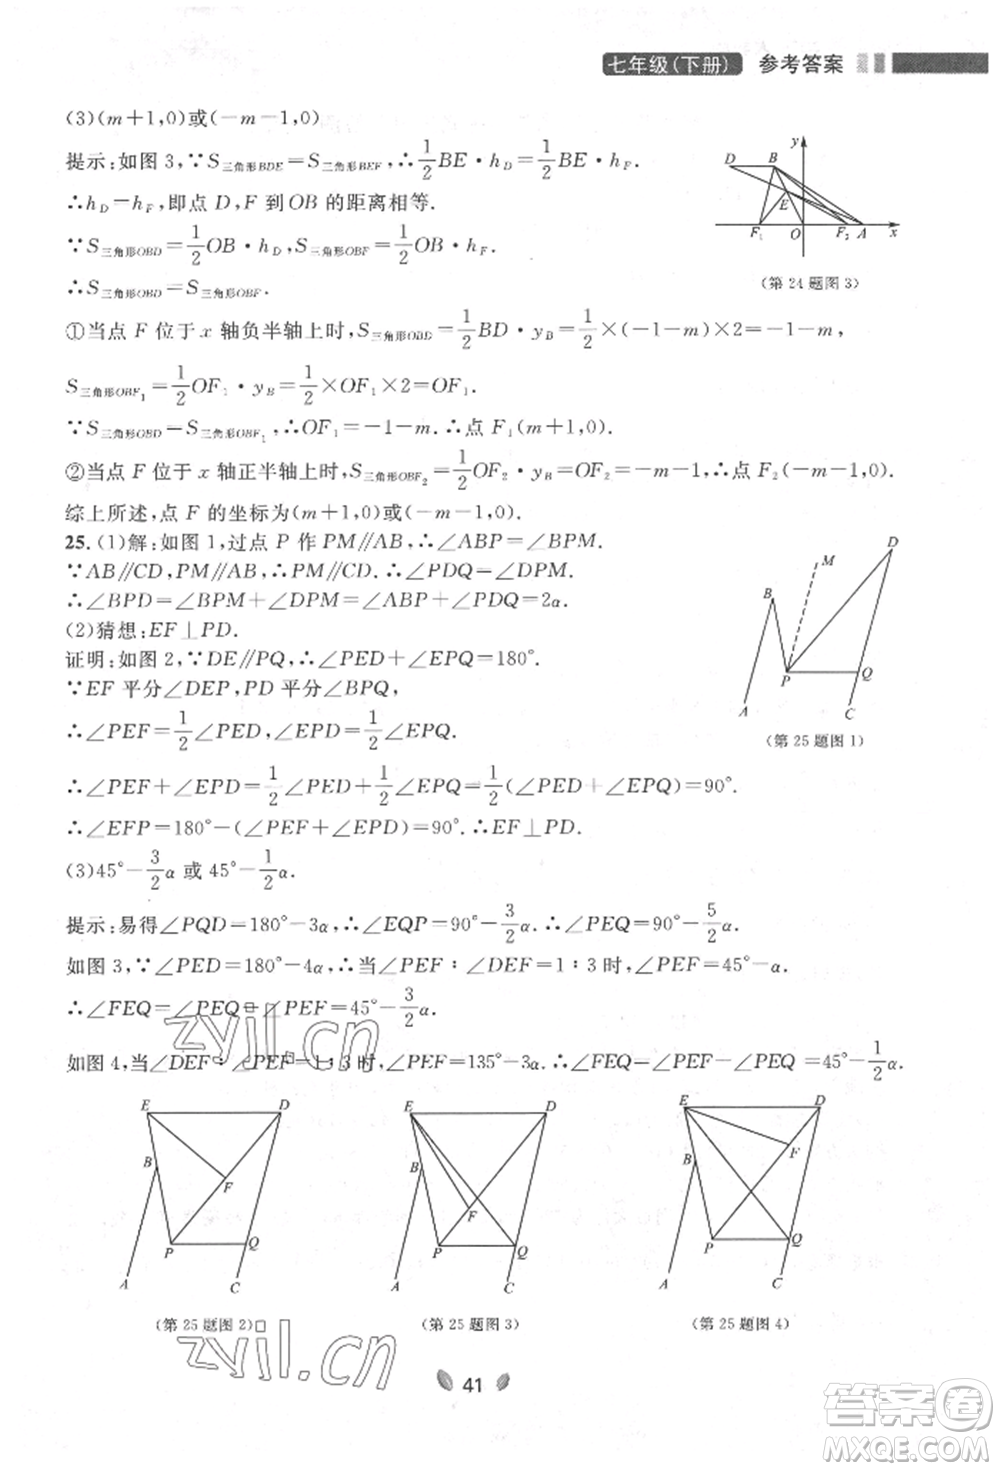 七年级(下册) 参考答案
(3)(m+1,0)或(-m-1,0)
提示:如图 3,∵S三角形BDE=S三角形BEF,∴1/2 BE·h_D=1/2 BE·h_F.
∴h_D=h_F,即点 D,F 到OB 的距离相等.
∵S三角形OBD=1/2 OB·h_D,S三角形OBF=1/2 OB·h_F,
∴S三角形OBD=S三角形OBF.
y
D B
E
F₁ O F₂ A x
(第 24 题图 3)
①当点 F 位于 x 轴负半轴上时,S三角形OBD=1/2 BD·y_B=1/2×(-1-m)×2=-1-m,
S三角形OBF₁=1/2 OF₁·y_B=1/2×OF₁×2=OF₁.
∵S三角形OBD=S三角形OBF₁,∴OF₁=-1-m.∴点 F₁(m+1,0).
②当点 F 位于 x 轴正半轴上时,S三角形OBF₂=1/2 OF₂·y_B=OF₂=-m-1,∴点 F₂(-m-1,0).
综上所述,点 F 的坐标为(m+1,0)或(-m-1,0).
25.(1)解:如图 1,过点 P 作 PM∥AB,∴∠ABP=∠BPM.
∵AB∥CD,PM∥AB,∴PM∥CD.∴∠PDQ=∠DPM=α.
∴∠BPD=∠BPM+∠DPM=∠ABP+∠PDQ=2α.
(2)猜想:EF⊥PD.
证明:如图 2,∵DE∥PQ,∴∠PED+∠EPQ=180°.
∵EF 平分∠DEP,PD 平分∠BPQ,
∴∠PEF=1/2∠PED,∠EPD=1/2∠EPQ.
D
M
B
P Q
A C
(第 25 题图 1)
∴∠PEF+∠EPD=1/2∠PED+1/2∠EPQ=1/2(∠PED+∠EPQ)=90°.
∴∠EFP=180°-(∠PEF+∠EPD)=90°.∴EF⊥PD.
(3)45°-3/2α 或 45°-1/2α.
提示:易得∠PQD=180°-3α,∴∠EQP=90°-3/2α.∴∠PEQ=90°-5/2α.
如图 3,∵∠PED=180°-4α,∴当∠PEF∶∠DEF=1∶3时,∠PEF=45°-α.
∴∠FEQ=∠PEQ-∠PEF=45°-3/2α.
如图 4,当∠DEF∶∠PEF=1∶3时,∠PEF=135°-3α.∴∠FEQ=∠PEF-∠PEQ=45°-1/2α.
E D
B
F
P Q
A C
(第 25 题图 2)
E D
B
F
P Q
A C
(第 25 题图 3)
E D
B F
P Q
A C
(第 25 题图 4)
zyjl.cn
zyjl.cn
41
答案圈
MXQE.COM